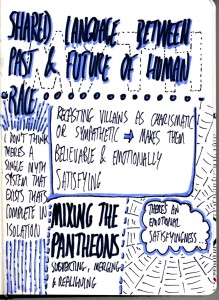 SHARED LANGUAGE BETWEEN
PAST & FUTURE OF HUMAN
RACE
RECASTING VILLAINS AS CHARISMATIC
OR SYMPATHETIC → MAKES THEM
BELIEVABLE & EMOTIONALLY
SATISFYING
I DON'T THINK
THERE'S A
SINGLE MYTH
SYSTEM THAT
EXISTS THAT'S
COMPLETE IN
ISOLATION
MIXING THE
PANTHEONS
SUBTRACTING, MERGING
& REALIGNING
THERE'S AN
EMOTIONAL
SATISFYINGNESS